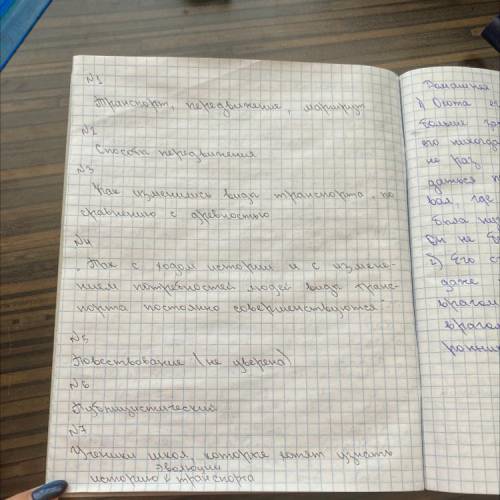 №1
Транспорт, передвижение, маршрут
№2
Способы передвижения
№3
Как изменились виды транспорта, по
сравнению с древностью
№4
"Так с ходом истории и с измене-
нием потребностей людей виды транс-
порта постоянно совершенствуются"
№5
Повествование (не уверена)
№6
Публицистический
№7
Ученики школ, которые хотят узнать
эволюции
историю транспорта
Домашняя
1) Охота
больше
его никогда
не раз
даться
вал, где
была
Он не
2) Его
даже
врагом
врагом